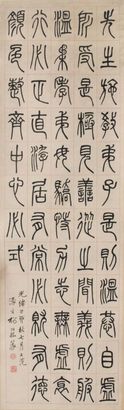 先生施教弟子是則溫恭自虛
所受是極見善從之聞義則服
溫柔孝弟毋驕恃力志無虛邪
行必正直游居有常必就有德
顏色整齊中心必式
光緒 秋七月
濠叟楊沂孫